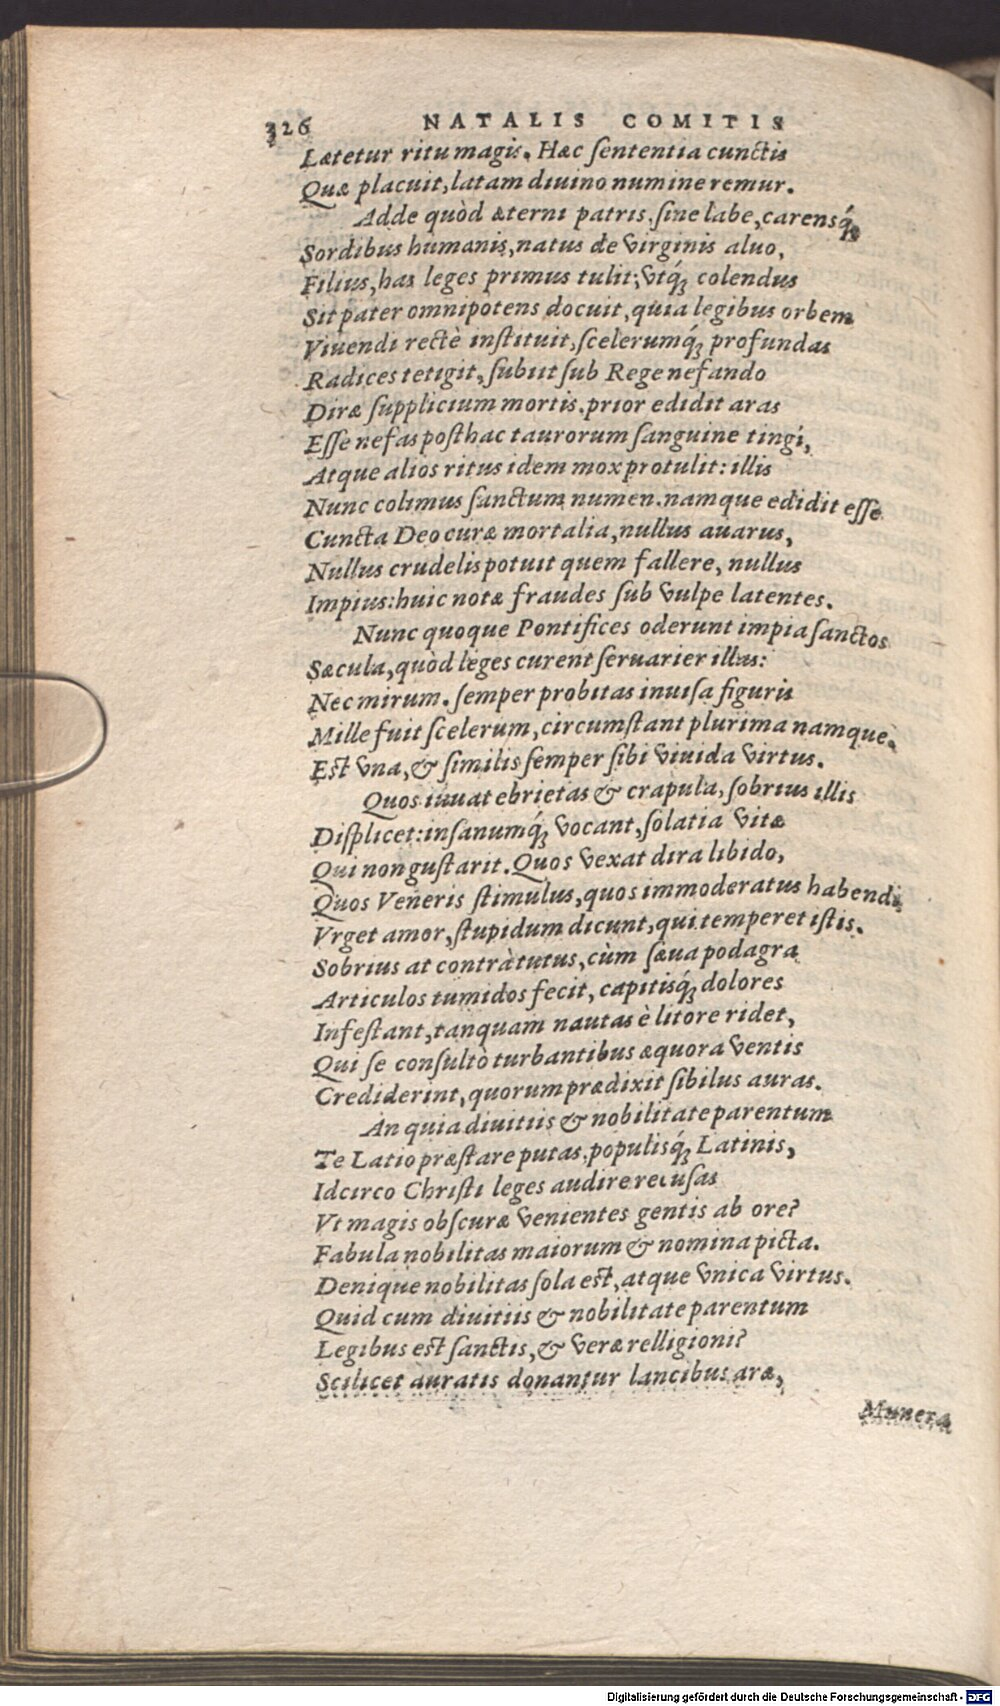 326 NATALIS COMITIS
Lætetur ritu magis. Hæc ſententia cunctis
Quæ placuit, latam diuino numine remur.
Adde quòd æterni patris, ſine labe, carensq́;
Sordibus humanis, natus de virginis aluo,
Filius, has leges primus tulit; vtq́; colendus
Sit pater omnipotens docuit, quia legibus orbem
Viuendi rectè inſtituit, ſcelerumq́; profundas
Radices tetigit, ſubiit ſub Rege nefando
Diræ ſupplicium mortis. prior edidit aras
Eſſe nefas poſthac taurorum ſanguine tingi,
Atque alios ritus idem mox protulit: illis
Nunc colimus ſanctum numen. namque edidit eſſe
Cuncta Deo curæ mortalia, nullus auarus,
Nullus crudelis potuit quem fallere, nullus
Impius: huic notæ fraudes ſub vulpe latentes.
Nunc quoque Pontifices oderunt impia ſanctos
Sæcula, quòd leges curent ſeruarier illas:
Nec mirum. ſemper probitas inuiſa figuris
Mille fuit ſcelerum, circumſtant plurima namque.
Eſt vna, & ſimilis ſemper ſibi viuida virtus.
Quos iuuat ebrietas & crapula, ſobrius illis
Diſplicet: inſanumq́; vocant, ſolatia vitæ
Qui non guſtarit. Quos vexat dira libido,
Quos Veneris ſtimulus, quos immoderatus habendi
Vrget amor, ſtupidum dicunt, qui temperet iſtis.
Sobrius at contrà tutus, cùm ſæua podagra
Articulos tumidos fecit, capitisq́; dolores
Infeſtant, tanquam nautas è litore ridet,
Qui ſe conſultò turbantibus æquora ventis
Crediderint, quorum prædixit ſibilus auras.
An quia diuitiis & nobilitate parentum
Te Latio præſtare putas, populisq́; Latinis,
Idcirco Chriſti leges audire recuſas
Vt magis obſcuræ venientes gentis ab ore?
Fabula nobilitas maiorum & nomina picta.
Denique nobilitas ſola eſt, atque vnica virtus.
Quid cum diuitiis & nobilitate parentum
Legibus eſt ſanctis, & veræ relligioni?
Scilicet auratis donantur lancibus aræ,
Munera
Digitalisierung gefördert durch die Deutsche Forschungsgemeinschaft - DFG